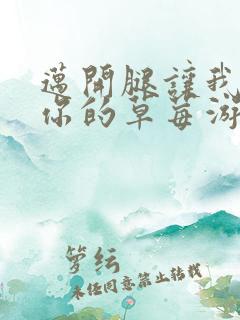 邁開腿讓我
你的草莓游
箩纭
未经同意禁止转载